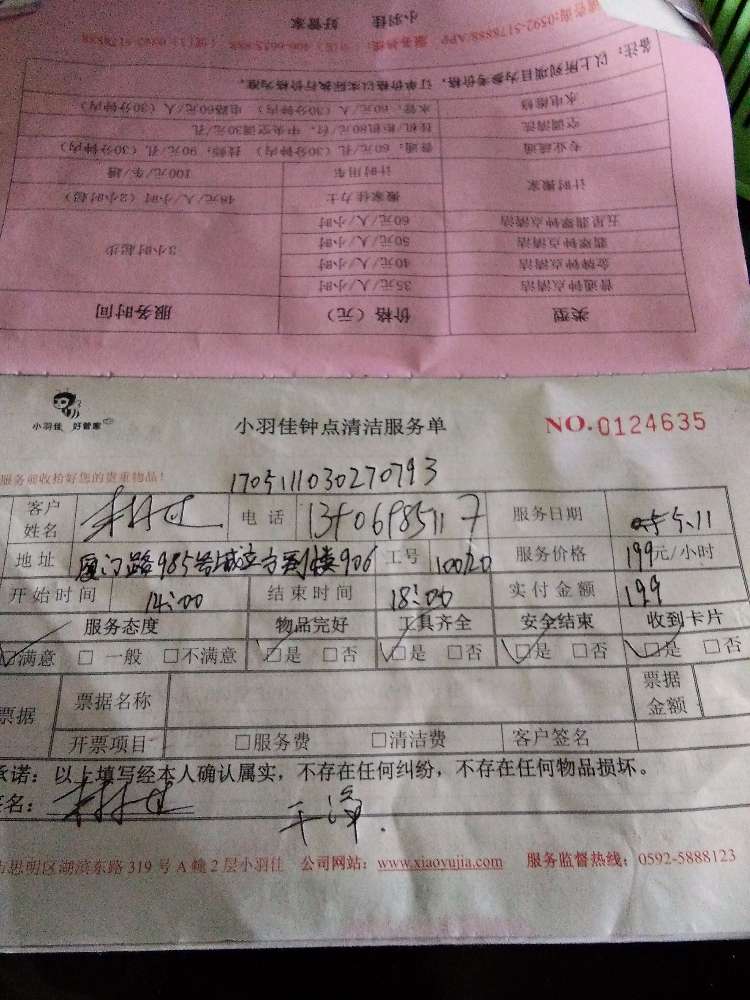 小羽佳 好管家
备注：以上所列项目为参考价格，订单价格以实际执行价格为准。
水电维修 水管：60元/人（30分钟内） 电路60元/人（30分钟内）
空调清洗 挂机/柜机80元/台，中央空调30元/孔
专业疏通 普通：60元/孔（30分钟内） 技师：90元/孔（30分钟内）
计时搬家 搬家佳力士 48元/人/小时（2小时起）
计时用车 100元/车/趟
五星翡翠钟点清洁 60元/人/小时
翡翠钟点清洁 50元/人/小时 3小时起步
金牌钟点清洁 40元/人/小时
普通钟点清洁 35元/人/小时
类型 价格（元） 服务时间
小羽佳 好管家
小羽佳钟点清洁服务单 NO.0124635
服务前收拾好您的贵重物品！
170511030270793
客户姓名 电话 服务日期 5.11
地址 厦门路985号成立方 906 工号 10020 服务价格 199元/小时
开始时间 14:00 结束时间 18:00 实付金额 199
服务态度 物品完好 工具齐全 安全结束 收到卡片
□满意 □一般 □不满意 □是 □否 □是 □否 □是 □否 □是 □否
票据 票据名称 票据金额
开票项目 □服务费 □清洁费 客户签名
承诺：以上填写经本人确认属实，不存在任何纠纷，不存在任何物品损坏。
签名：
市思明区湖滨东路319号A幢2层小羽佳 公司网站：www.xiaoyujia.com 服务监督热线：0592-5888123